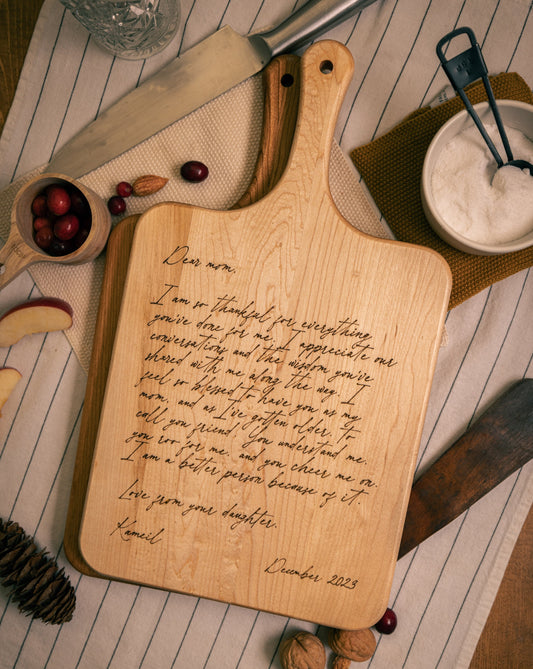 Dear mom,
I am so thankful for everything
you've done for me. I appreciate our
conversations and the wisdom you've
shared with me along the way. I
feel so blessed to have you as my
mom, and as I've gotten older, to
call you friend. You understand me,
you roo for me, and you cheer me on.
I am a better person because of it.
Love from your daughter,
Kameil
December 2023